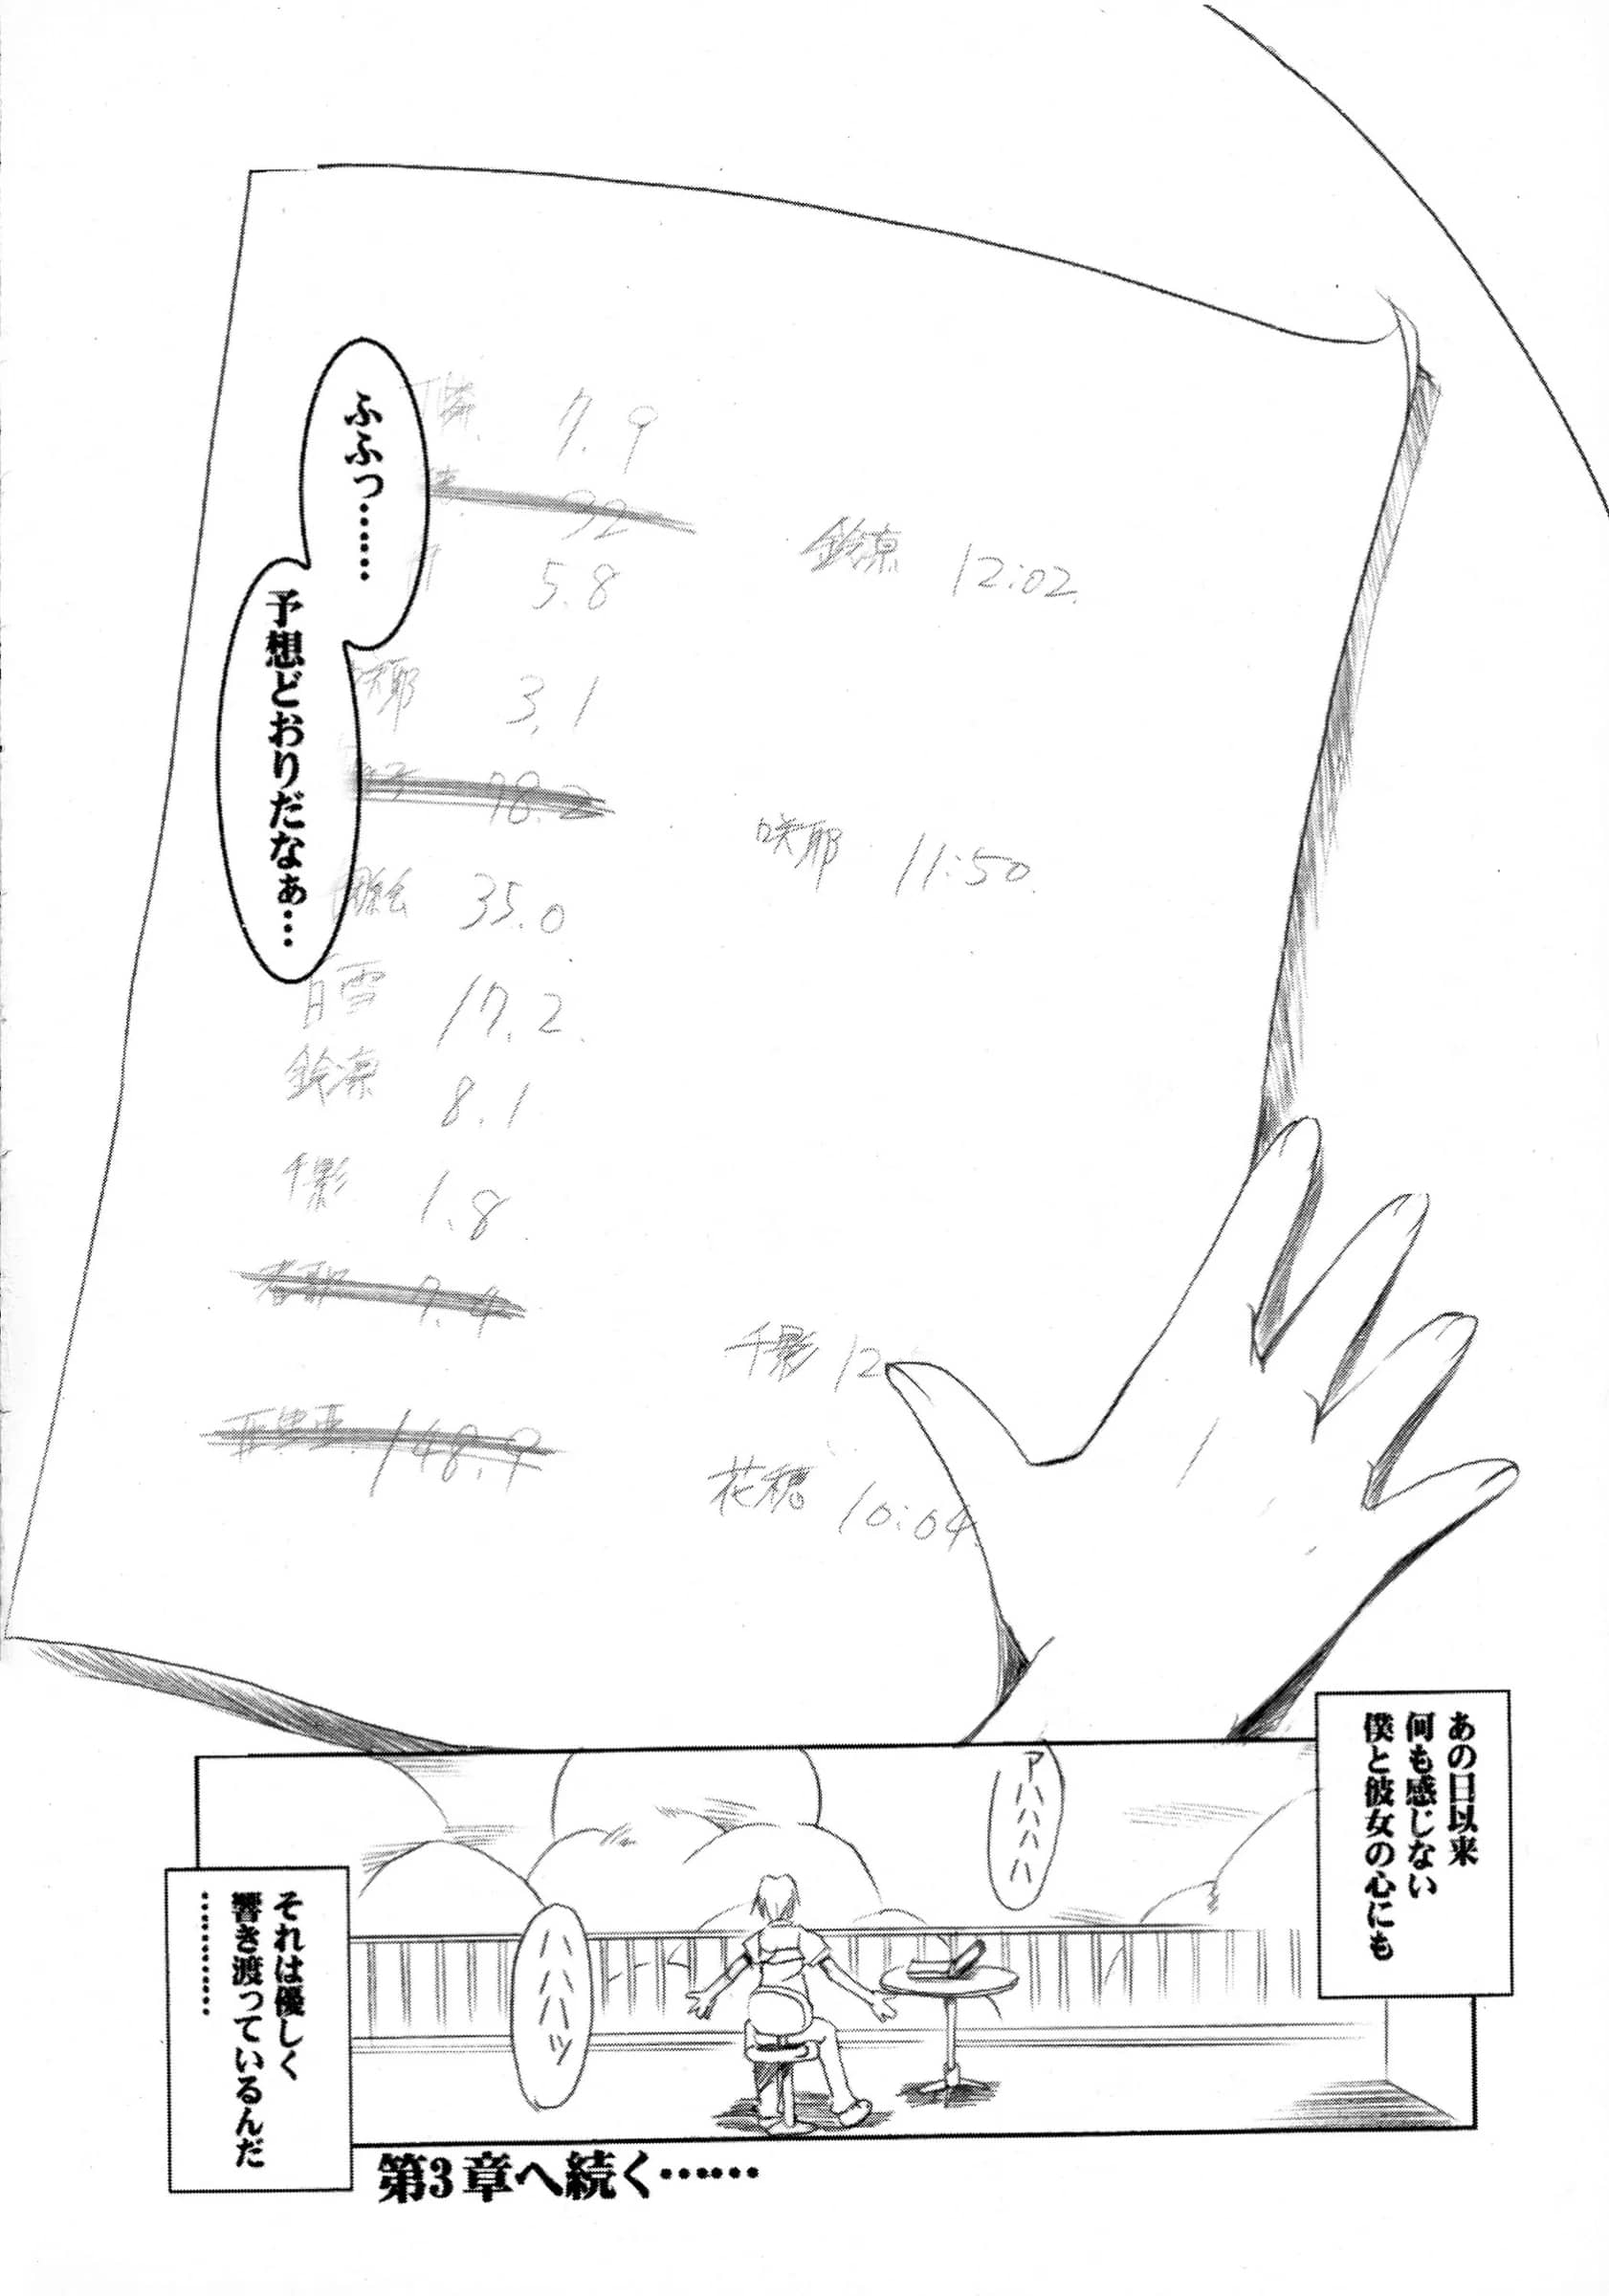 ふふっ……
予想どおりだなぁ…
7.9
32
5.8
鈴凛 12:02.
咲耶 3.1
18.2
咲耶 11:50.
35.0
白雪 17.2.
鈴凛 8.1
千影 1.8
春歌 7.4
千影 12
亞里亞 148.9
花穂 10:04.
あの日以来
何も感じない
僕と彼女の心にも
アハハハハ
ハハハハッ
それは優しく
響き渡っているんだ
…………
第3章へ続く……